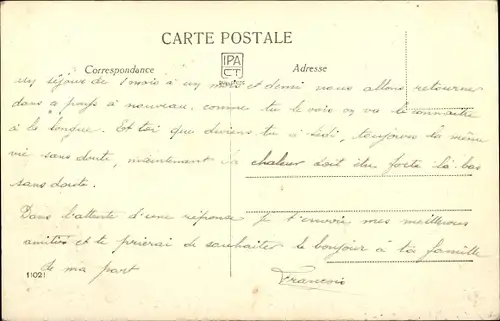 CARTE POSTALE
IPA
CT
Correspondance
Adresse
un séjour de 1 mois à un mois et demi nous allons retourner
dans ce pays à nouveau, comme tu le vois on va le connaître
à la longue. Et toi que deviens tu à Sidi, toujours la même
vie sans doute, maintenant la chaleur doit être forte là-bas
sans doute.
Dans l'attente d'une réponse je t'envoie mes meilleures
amitiés et te prierai de souhaiter le bonjour à ta famille
de ma part
François
11021